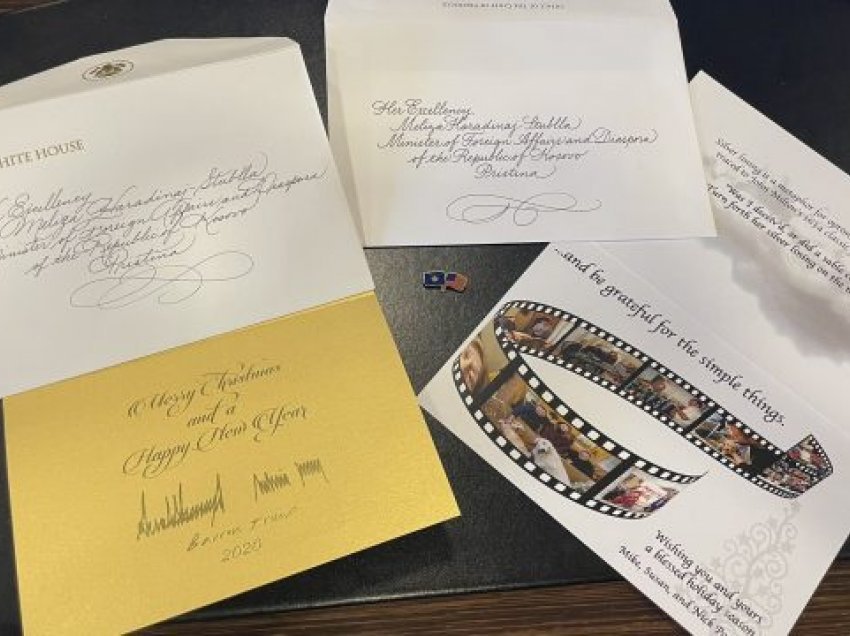 HITE HOUSE
Excellency
Meliza Haradinaj-Stublla
Minister of Foreign Affairs and Diaspora
of the Republic of Kosovo
Pristina
Her Excellency
Meliza Haradinaj-Stublla
Minister of Foreign Affairs and Diaspora
of the Republic of Kosovo
Pristina
Silver lining is a metaphor for
to John
"Was I deceiv'd, or did a sable
forth her silver lining on the
...and be grateful for the simple things.
Wishing you and yours
a blessed holiday season
Mike, Susan, and Nick P
Merry Christmas
and a
Happy New Year
Barron Trump
2020